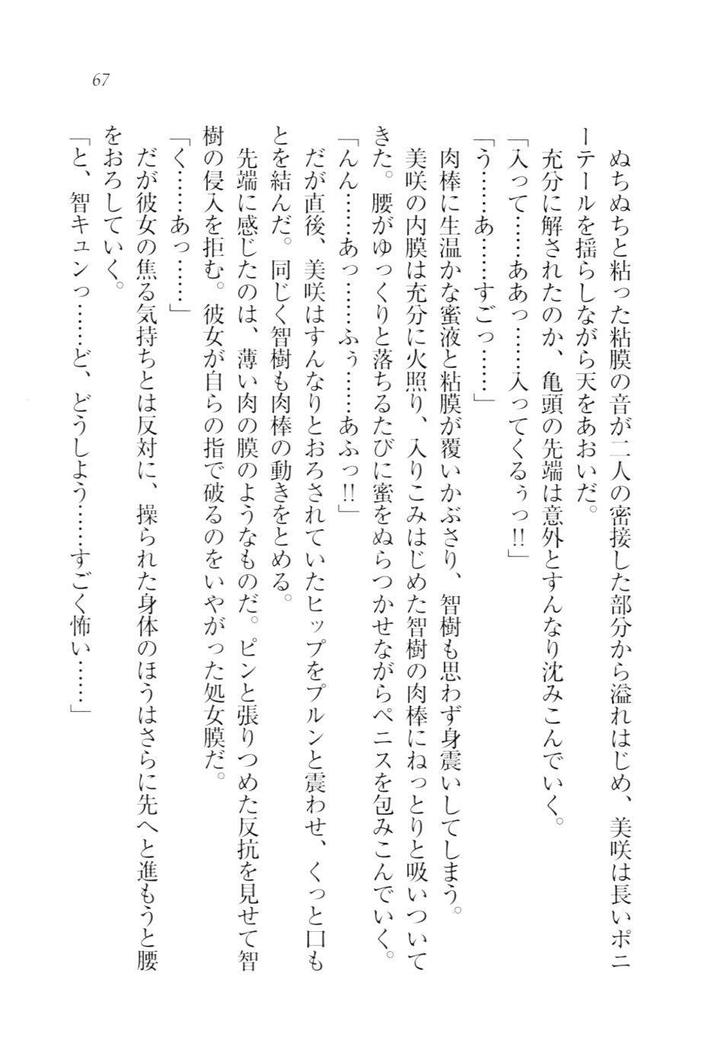 67
ぬちぬちと粘った粘膜の音が二人の密接した部分から溢れはじめ、美咲は長いポニ
ーテールを揺らしながら天をあおいだ。
充分に解されたのか、亀頭の先端は意外とすんなり沈みこんでいく。
「入って……ああっ……入ってくるぅっ!!」
「う……あ……すごっ……」
肉棒に生温かな蜜液と粘膜が覆いかぶさり、智樹も思わず身震いしてしまう。
美咲の内膜は充分に火照り、入りこみはじめた智樹の肉棒にねっとりと吸いついて
きた。腰がゆっくりと落ちるたびに蜜をぬらつかせながらペニスを包みこんでいく。
「んん……あっ……ふぅ……あふっ!!」
だが直後、美咲はすんなりとおろされていたヒップをプルンと震わせ、くっと口も
とを結んだ。同じく智樹も肉棒の動きをとめる。
先端に感じたのは、薄い肉の膜のようなものだ。ピンと張りつめた反抗を見せて智
樹の侵入を拒む。彼女が自らの指で破るのをいやがった処女膜だ。
「く……あっ……」
だが彼女の焦る気持ちとは反対に、操られた身体のほうはさらに先へと進もうと腰
をおろしていく。
「と、智キュンっ……ど、どうしよう……すごく怖い……」